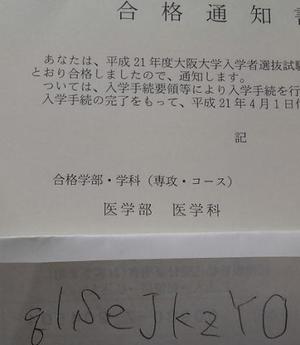 合格通知書
あなたは、平成21年度大阪大学入学者選抜試験
とおり合格しましたので、通知します。
ついては、入学手続要領等により入学手続を行
入学手続の完了をもって、平成21年4月1日付
記
合格学部・学科(専攻・コース)
医学部 医学科
qlNeJkzYO